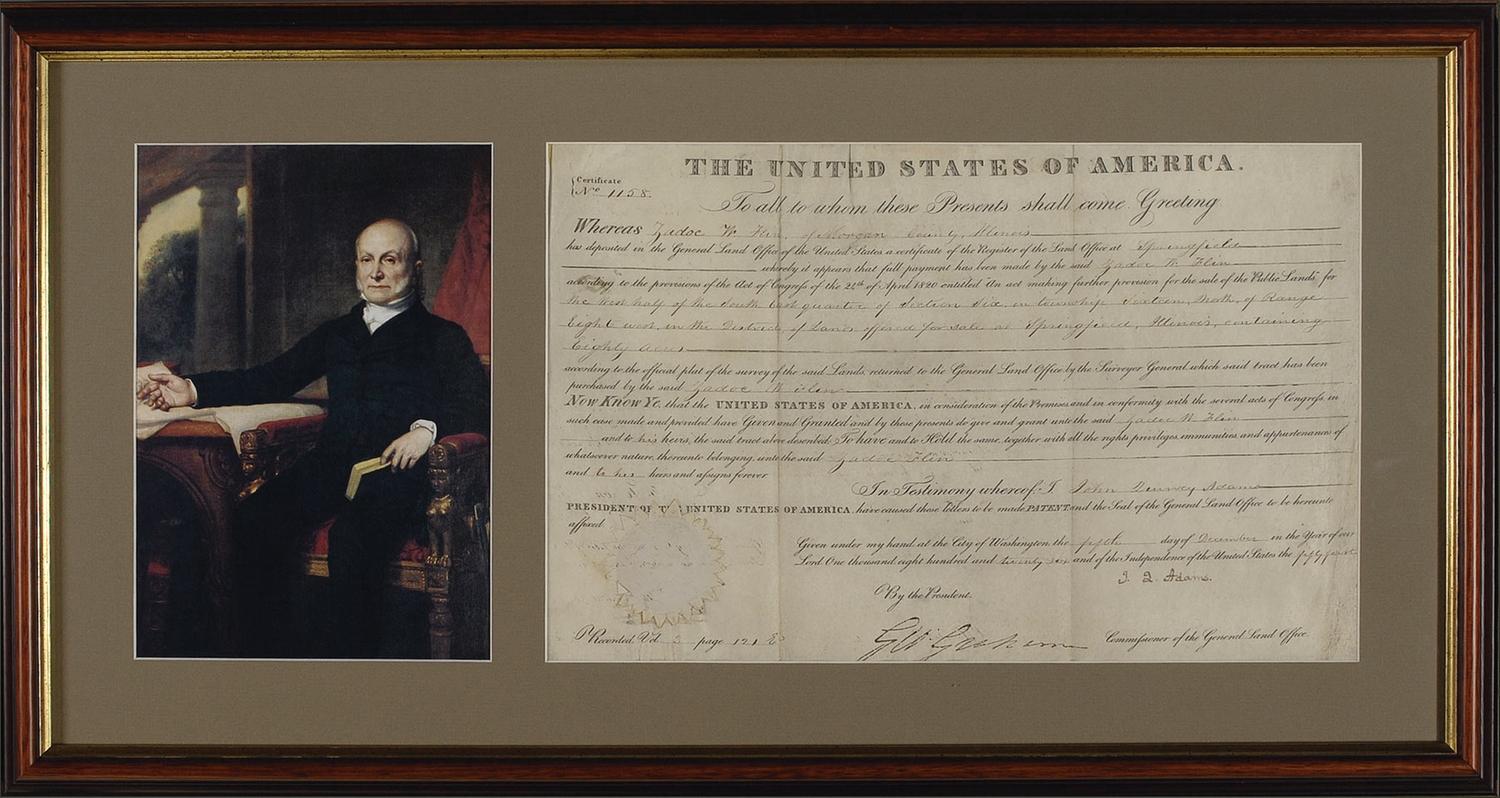 THE UNITED STATES OF AMERICA.
Certificate
No. 1158.
To all to whom these Presents shall come Greeting
Whereas Zadoc W. Flin, of Morgan County, Illinois
has deposited in the General Land Office of the United States a certificate of the Register of the Land Office at Springfield
whereby it appears that full payment has been made by the said Zadoc W. Flin
according to the provisions of the Act of Congress of the 24th of April 1820 entitled "An act making further provision for the sale of the Public Lands" for
the West half of the South East quarter of Section Six, in township Sixteen, North, of Range
Eight west, in the District of Lands offered for sale at Springfield, Illinois, containing
Eighty acres
according to the official plat of the survey of the said Lands, returned to the General Land Office by the Surveyor General, which said tract has been
purchased by the said Zadoc W Flin
Now Know Ye, that the UNITED STATES OF AMERICA, in consideration of the Premises and in conformity with the several acts of Congress, in
such case made and provided have Given and Granted and by these presents do give and grant unto the said Zadoc W Flin
and to his heirs, the said tract above described. To have and to Hold the same, together with all the rights privileges, immunities, and appurtenances of
whatsoever nature, thereunto belonging, unto the said Zadoc Flin
and to his heirs and assigns forever
In Testimony whereof, I John Quincy Adams
PRESIDENT OF THE UNITED STATES OF AMERICA, have caused these letters to be made PATENT and the Seal of the General Land Office to be hereunto
affixed
Given under my hand at the City of Washington, the fifth day of December in the Year of our
Lord One thousand eight hundred and twenty six and of the Independence of the United States the fifty first
J. Q. Adams.
By the President.
Recorded, Vol 3 page 121
Geo: Graham Commissioner of the General Land Office.